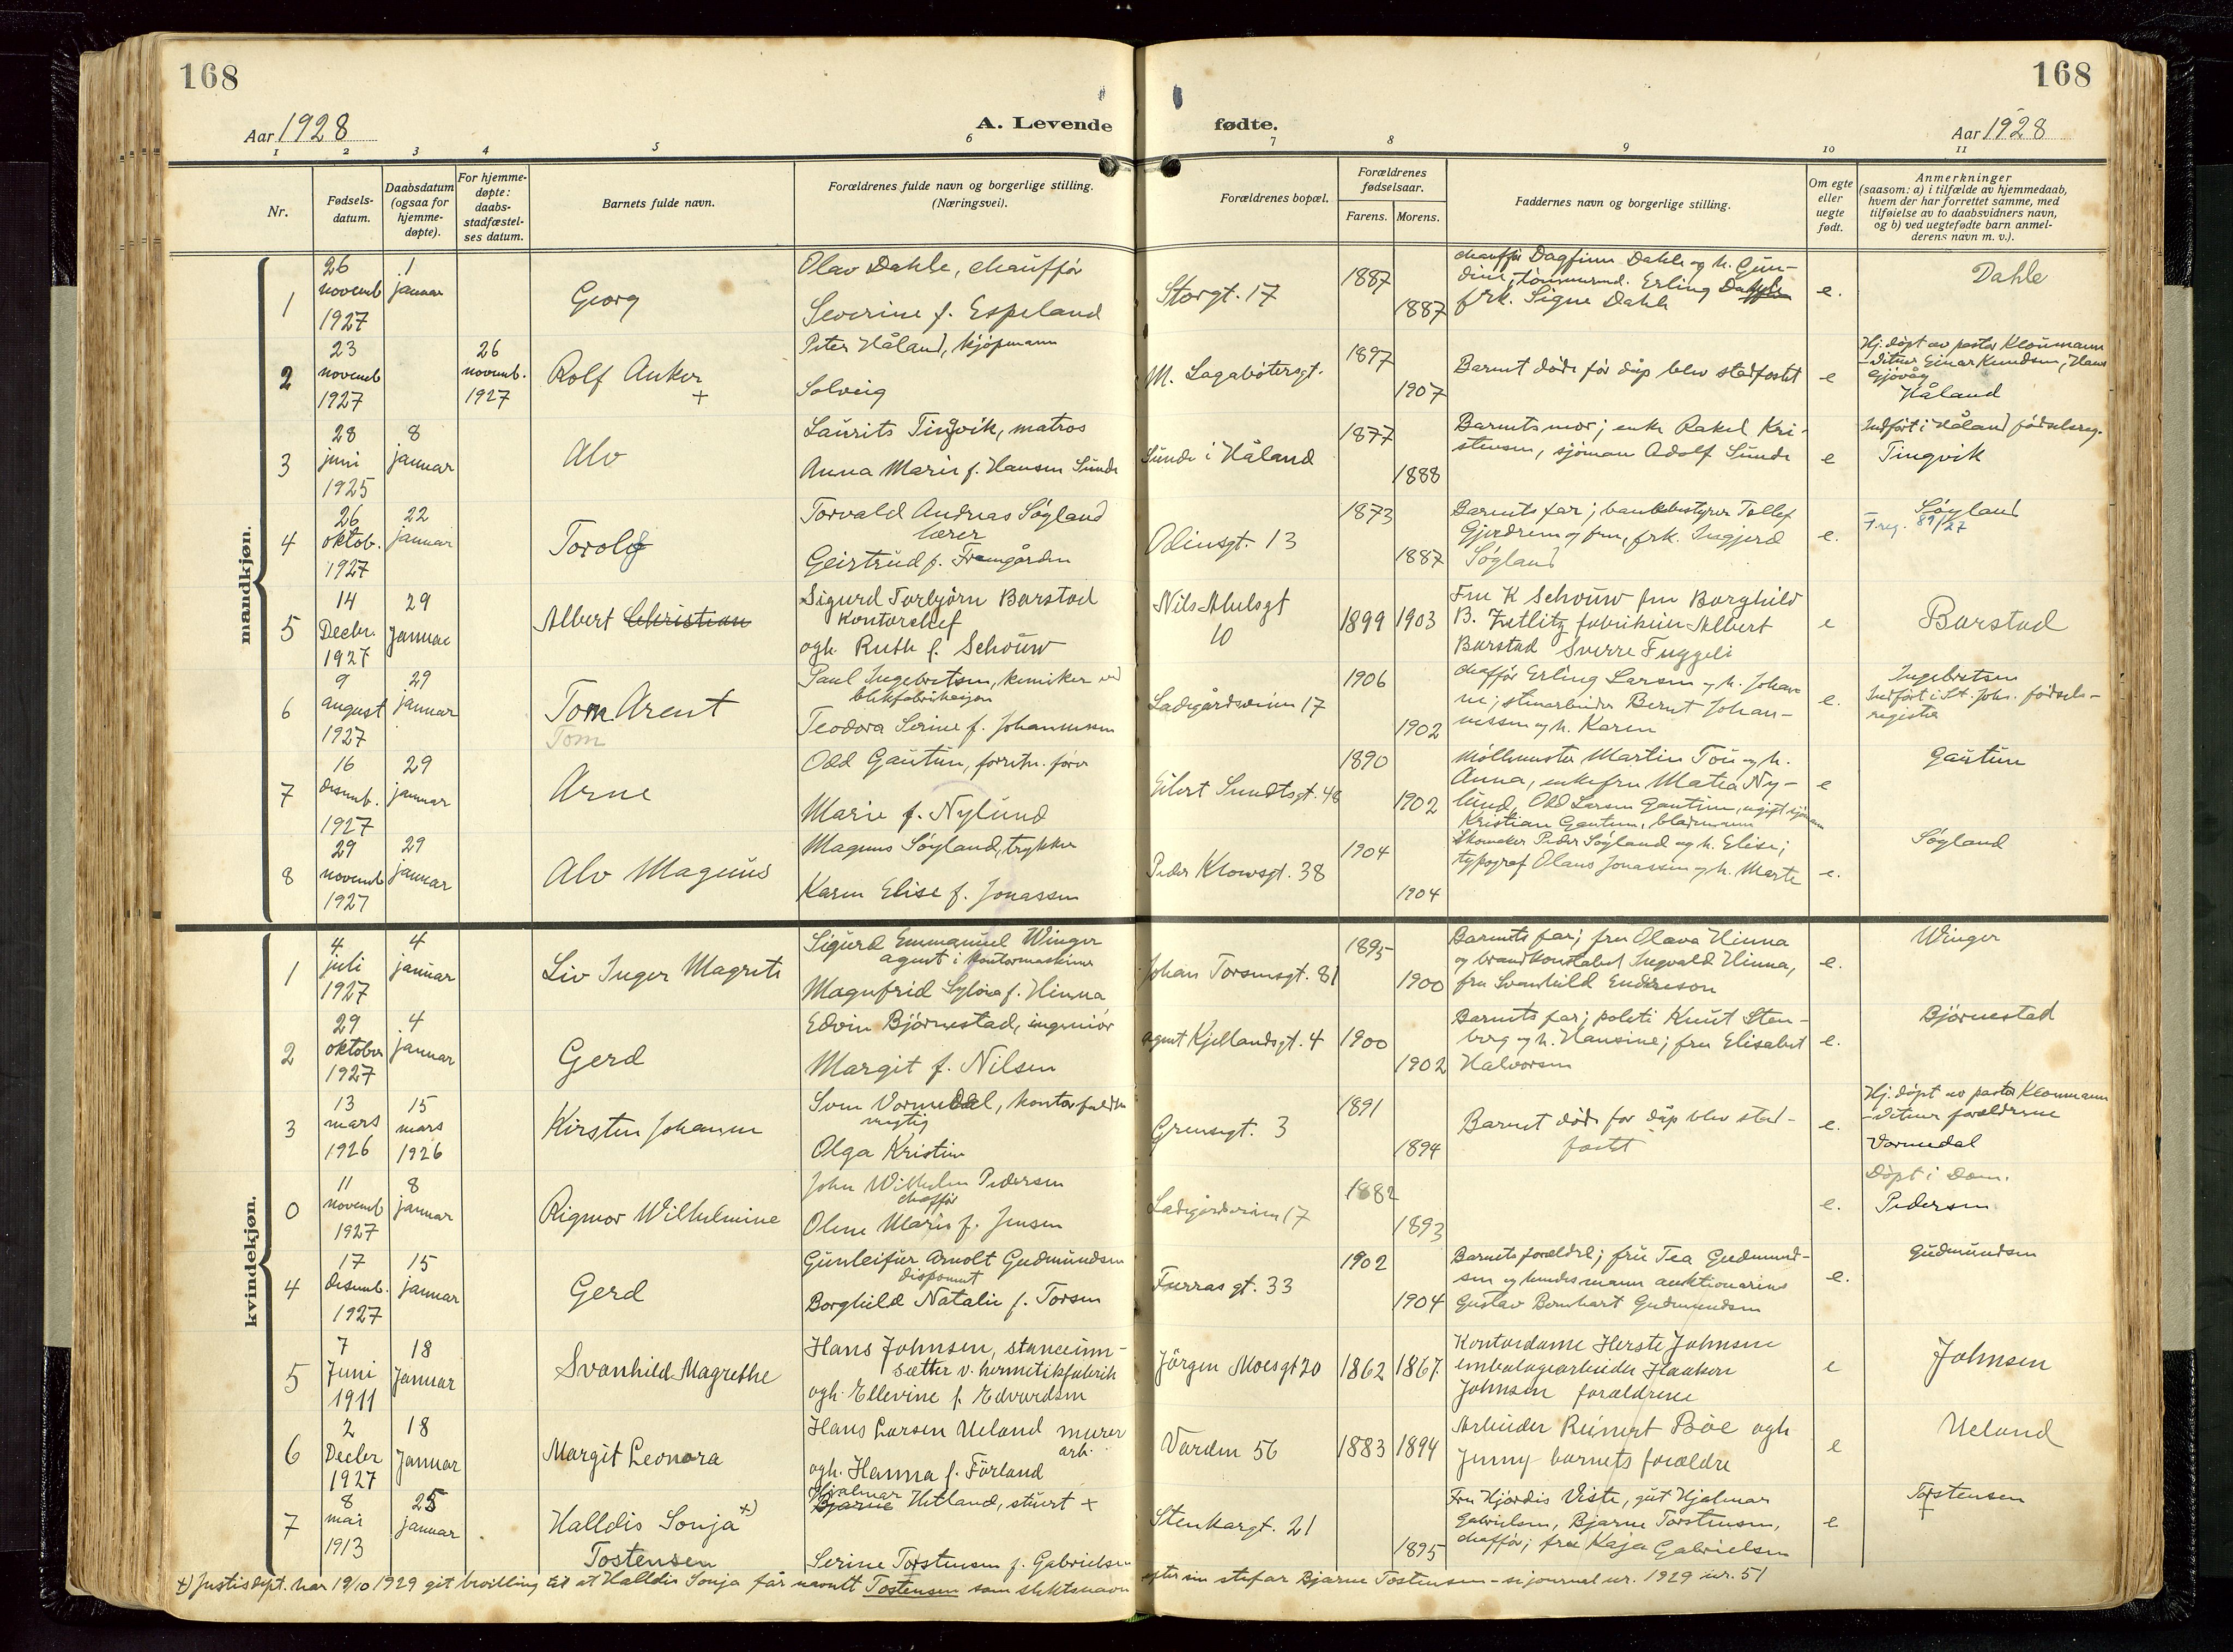 168
168
Aar 1928
A. Levende fødte.
Aar 1928
1 2 3 4 5 6 7 8 9 10 11
Nr.
Fødsels-
datum.
Daabsdatum
(ogsaa for
hjemme-
døpte).
For hjemme-
døpte:
daabs-
stadfæstel-
ses datum.
Barnets fulde navn.
Forældrenes fulde navn og borgerlige stilling.
(Næringsvei).
Forældrenes bopæl.
Forældrenes
fødselsaar.
Farens. Morens.
Faddernes navn og borgerlige stilling.
Om egte
eller
uegte
født.
Anmerkninger
(saasom: a) i tilfælde av hjemmedaab,
hvem der har forrettet samme, med
tilføielse av to daabsvidners navn,
og b) ved uegtefødte barn anmel-
derens navn m. v.).
mandkjøn.
1
26
novemb
1927
1
januar
Georg
Olav Dahle, chauffør
Severine f. Espeland
Storgt. 17
1887
1887
chauffør Dagfinn Dahle og h. Gun-
dine, tømmermd. Erling Dahle
frk. Signe Dahle
e.
Dahle
2
23
novemb
1927
26
novemb.
1927
Rolf Anker
+
Peter Håland, kjøpmann
Solveig
M. Lagabøtersgt.
1897
1907
Barnet døde før dåp blev stadfestet
e
Hj. døpt av pastor Kloumann
-vitner Einar Knudsen, Hans
Gjøvåg
Håland
3
28
juni
1925
8
januar
Alv
Laurits Tingvik, matros
Anna Marie f. Hansen Sunde
Sunde i Håland
1877
1888
Barnets mor; enke Rakel Kri-
stensen, sjøman Adolf Sunde
e
Indført i Håland fødselsreg.
Tingvik
4
26
oktob.
1927
22
januar
Torolf
Torvald Andreas Søyland
lærer
Geirtrud f. Fremgården
Odinsgt. 13
1873
1887
Barnets far; bankbestyrer Tollef
Gjedrem og fru, frk. Ingjerd
Søyland
e.
Søyland
F.reg. 89/27
5
14
Decbr.
1927
29
Januar
Albert Christian
Sigurd Torbjørn Barstad
Kontorchef
ogh. Ruth f. Schouw
Nils Abelsgt
10
1899
1903
Fru K Schouw fru Borghild
B. Zetlitz fabrikeier Albert
Barstad Sverre Fuggeli
e
Barstad
6
9
august
1927
29
januar
Tom Arent
Tom
Paul Ingebretsen, kemiker ved
blikfabrikeign
Teodora Serine f. Johannessen
Ladegårdsveien 17
1906
1902
chaffør Erling Larsen og h. Johan
ne; stenarbeider Bernt Johan-
nessen og h. Karen
e.
Ingebretsen
Indført i St. Johs. fødsels-
register
7
16
desemb.
1927
29
januar
Arne
Odd Gautun, forretn. fører
Marie f. Nylund
Eilert Sundtsgt. 48
1890
1902
Møllemester Martin Tou og h.
Anna, enkefru Matea Ny-
lund, Odd Larsen Gautun, ugift sjømann
Kristian Gautun, bladmann
e
Gautun
8
29
novemb
1927
29
januar
Alv Magnus
Magnus Søyland, trykker
Karen Elise f. Jonassen
Peder Klowsgt. 38
1904
1904
Skomaker Peder Søyland og h. Elise;
typograf Olaus Jonassen og h. Marte
e.
Søyland
kvindekjøn.
1
4
juli
1927
4
januar
Liv Inger Magrete
Sigurd Emmanuel Winger
agent i kontormaskiner
Magnfrid Sylvia f. Hinna
Johan Torsensgt. 81
1895
1900
Barnets far; fru Olava Hinna
og brandkonstabel Ingvald Hinna,
fru Svanhild Endresson
e.
Winger
2
29
oktober
1927
4
januar
Gerd
Edvin Bjørnestad, ingeniør
Margit f. Nilsen
agent Kjellandsgt. 4
1900
1902
Barnets far; politi Knut Sten-
berg og h. Hansine; fru Elisabet
Halvorsen
e.
Bjørnestad
3
13
mars
1926
15
mars
1926
Kirsten Johanne
Sven Vormedal, kontorfuldm
megtig
Olga Kristine
Grensegt. 3
1891
1894
Barnet døde før dåp blev stad-
festet
e.
Hj. døpt av pastor Kloumann
-vitner forældrene
Vormedal
0
11
novemb
1927
8
januar
Rigmor Wilhelmine
John Wilhelm Pedersen
chaffør
Oline Marie f. Jensen
Ladegårdsveien 17
1882
1893
e.
Døpt i Dom.
Pedersen
4
17
desemb.
1927
15
januar
Gerd
Gunleifur Arnolt Gudmundsen
disponent
Borghild Natalie f. Torsen
Furras gt. 33
1902
1904
Barnets forældre; fru Tea Gudmund-
sen og hendes mann auktionarius
Gustav Bernhart Gudmundsen
e.
Gudmundsen
5
7
Juni
1911
18
Januar
Svanhild Magrethe
Hans Johnsen, stanceinn-
sætter v. hermetikfabrik
ogh. Ellevine f. Edvardsen
Jørgen Moesgt 20
1862
1867.
Kontordame Herste Johnsen
embalagearbeider Haakon
Johnsen forældrene
e
Johnsen
6
2
Decbr
1927
18
Januar
Margit Leonora
Hans Larsen Ueland murer
arb.
ogh. Hanna f. Förland
Varden 56
1883
1894
Arbeider Reinert Bøe ogh
Jenny barnets forældre
e
Ueland
7
8
mai
1913
25
januar
Halldis Sonja +)
Tostensen
Hjalmar
Bjarne Hetland, stuert +
Serine Torstensen f. Gabrielsen
Stenkargt. 21
1895
Fru Hjørdis Viste, gut Hjalmar
Gabrielsen, Bjarne Torstensen,
chaffør; frøk Kaja Gabrielsen
e
Torstensen
+) Justisdept. har 19/10 1929 git bevilling til at Halldis Sonja får navnet Tostensen som slektsnavn efter sin stefar Bjarne Tostensen - se journal nr. 1929 nr. 51